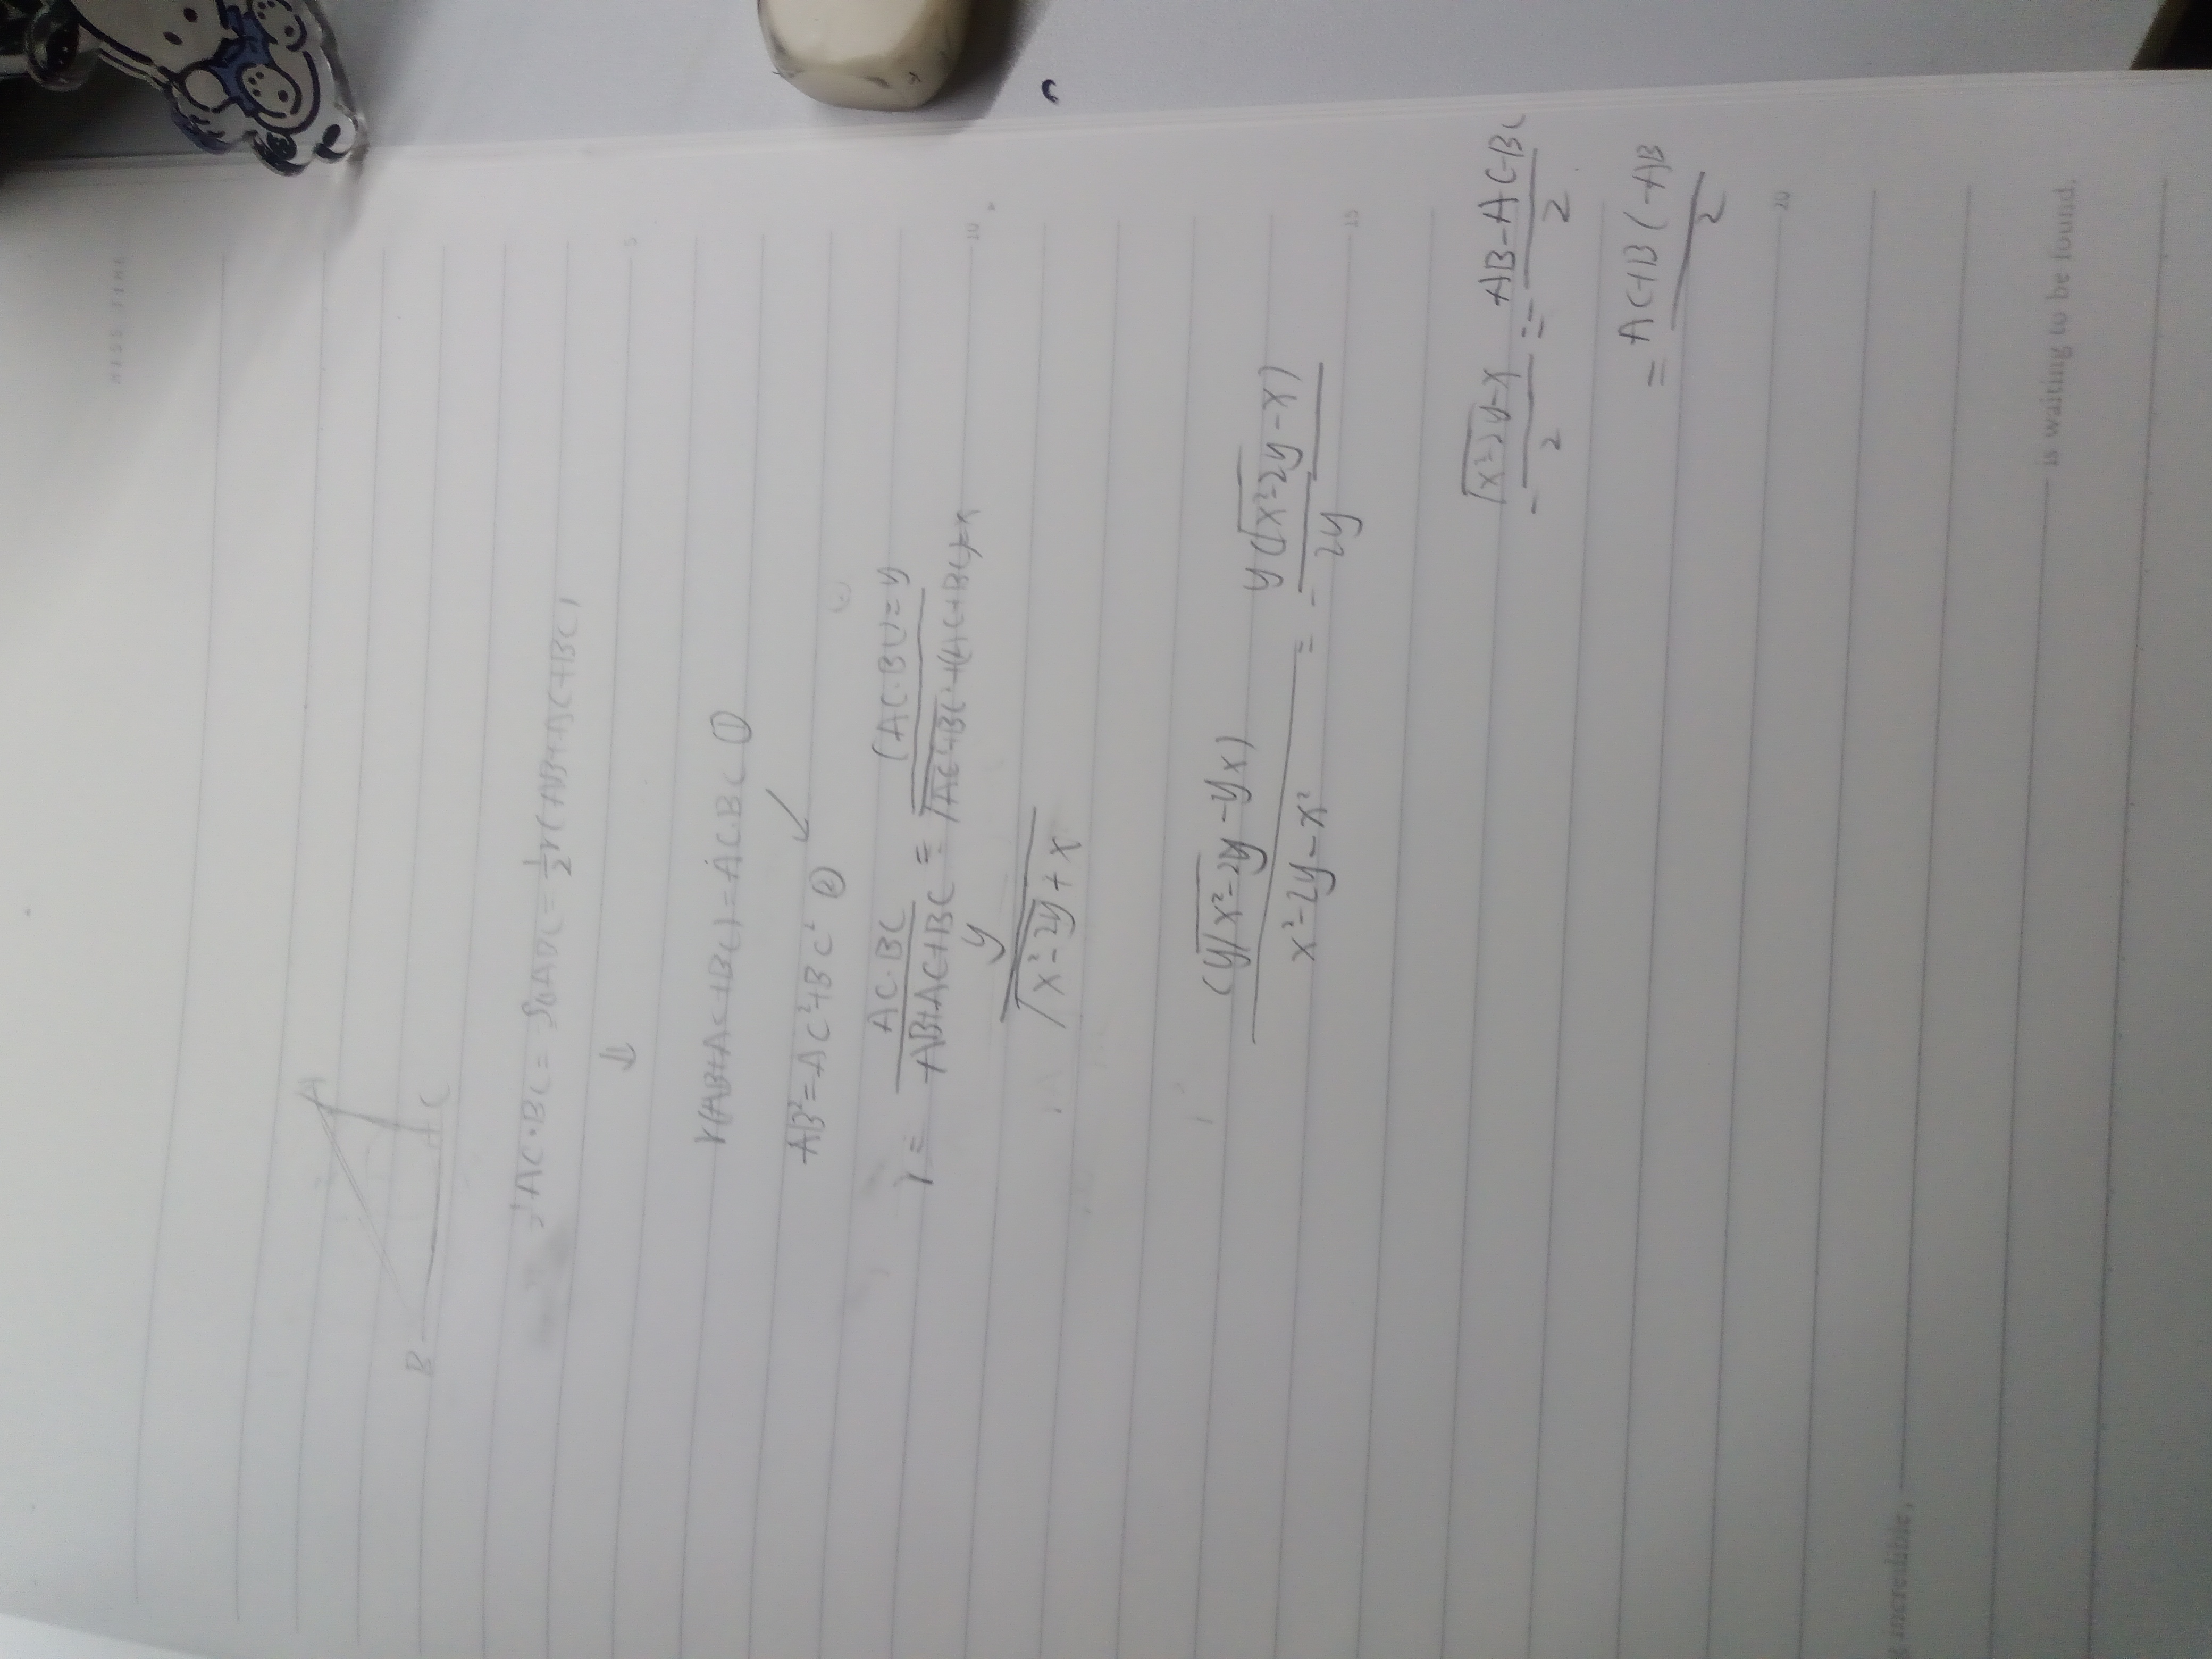 A
B C
½AC·BC=S△ABC=½r(AB+AC+BC)
⇓
r(AB+AC+BC)=AC·BC ①
↙
AB²=AC²+BC² ②
r= AC·BC/(AB+AC+BC) = (AC·BC)=y/(√(AC²+BC²)+(AC+BC)=x)
y/(√(x²-2y)+x)
(y√(x²-2y)-yx)/(x²-2y-x²) = - y(√(x²-2y)-x)/2y
- (√(x²-2y)-x)/2 = - (AB-AC-BC)/2
= (AC+BC-AB)/2
5
10
15
20
is waiting to be found.
incredible,